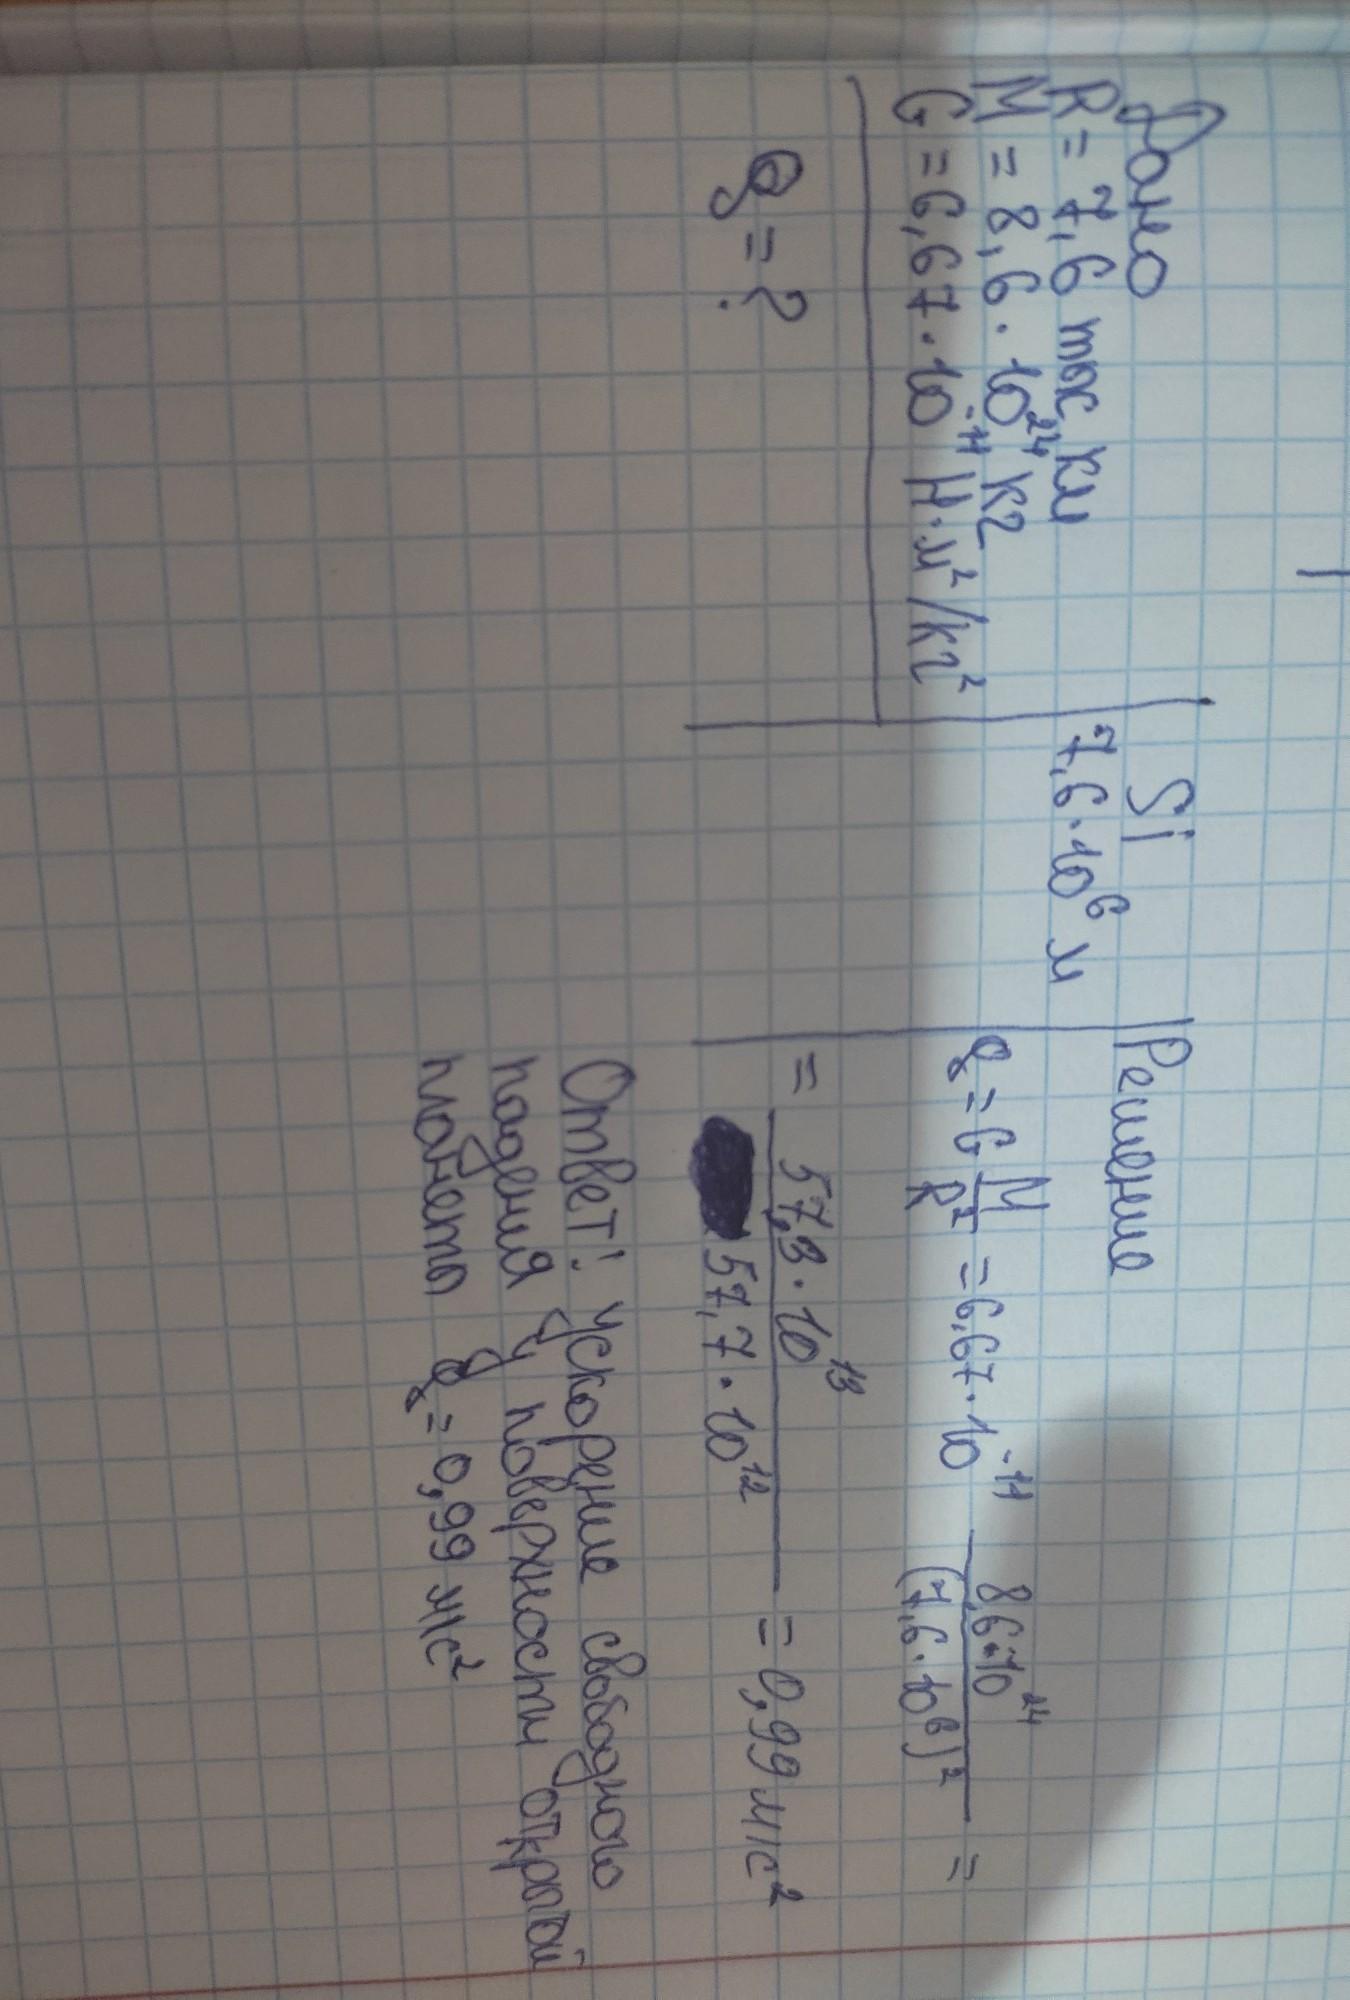 Дано
R = 7,6 тыс км
M = 8,6 · 10²⁴ кг
G = 6,67 · 10⁻¹¹ Н·м²/кг²
g = ?
Si
7,6·10⁶ м
Решение
g = G M/R² = 6,67·10⁻¹¹ 8,6·10²⁴/(7,6·10⁶)² =
= 57,3·10¹³/57,7·10¹² = 0,99 м/с²
Ответ: ускорение свободного
падения у поверхности открытой
планеты g = 0,99 м/с²